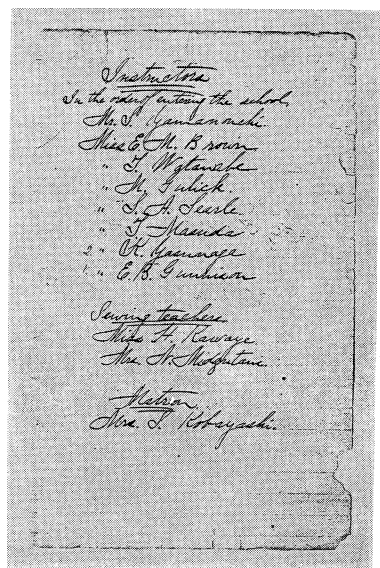 Instructors
In the order of entering the school,
Mr. T. Yamanouchi
Miss E. M. Brown
" T. Watanabe
" M. Gulick.
" S. A. Searle
" T. Masuda
2 " K. Yasunaga
1 " E. B. Gunnison
Sewing teachers
Miss H. Kawaye
Mrs. N. Midzutani
Matron
Mrs. T. Kobayashi.